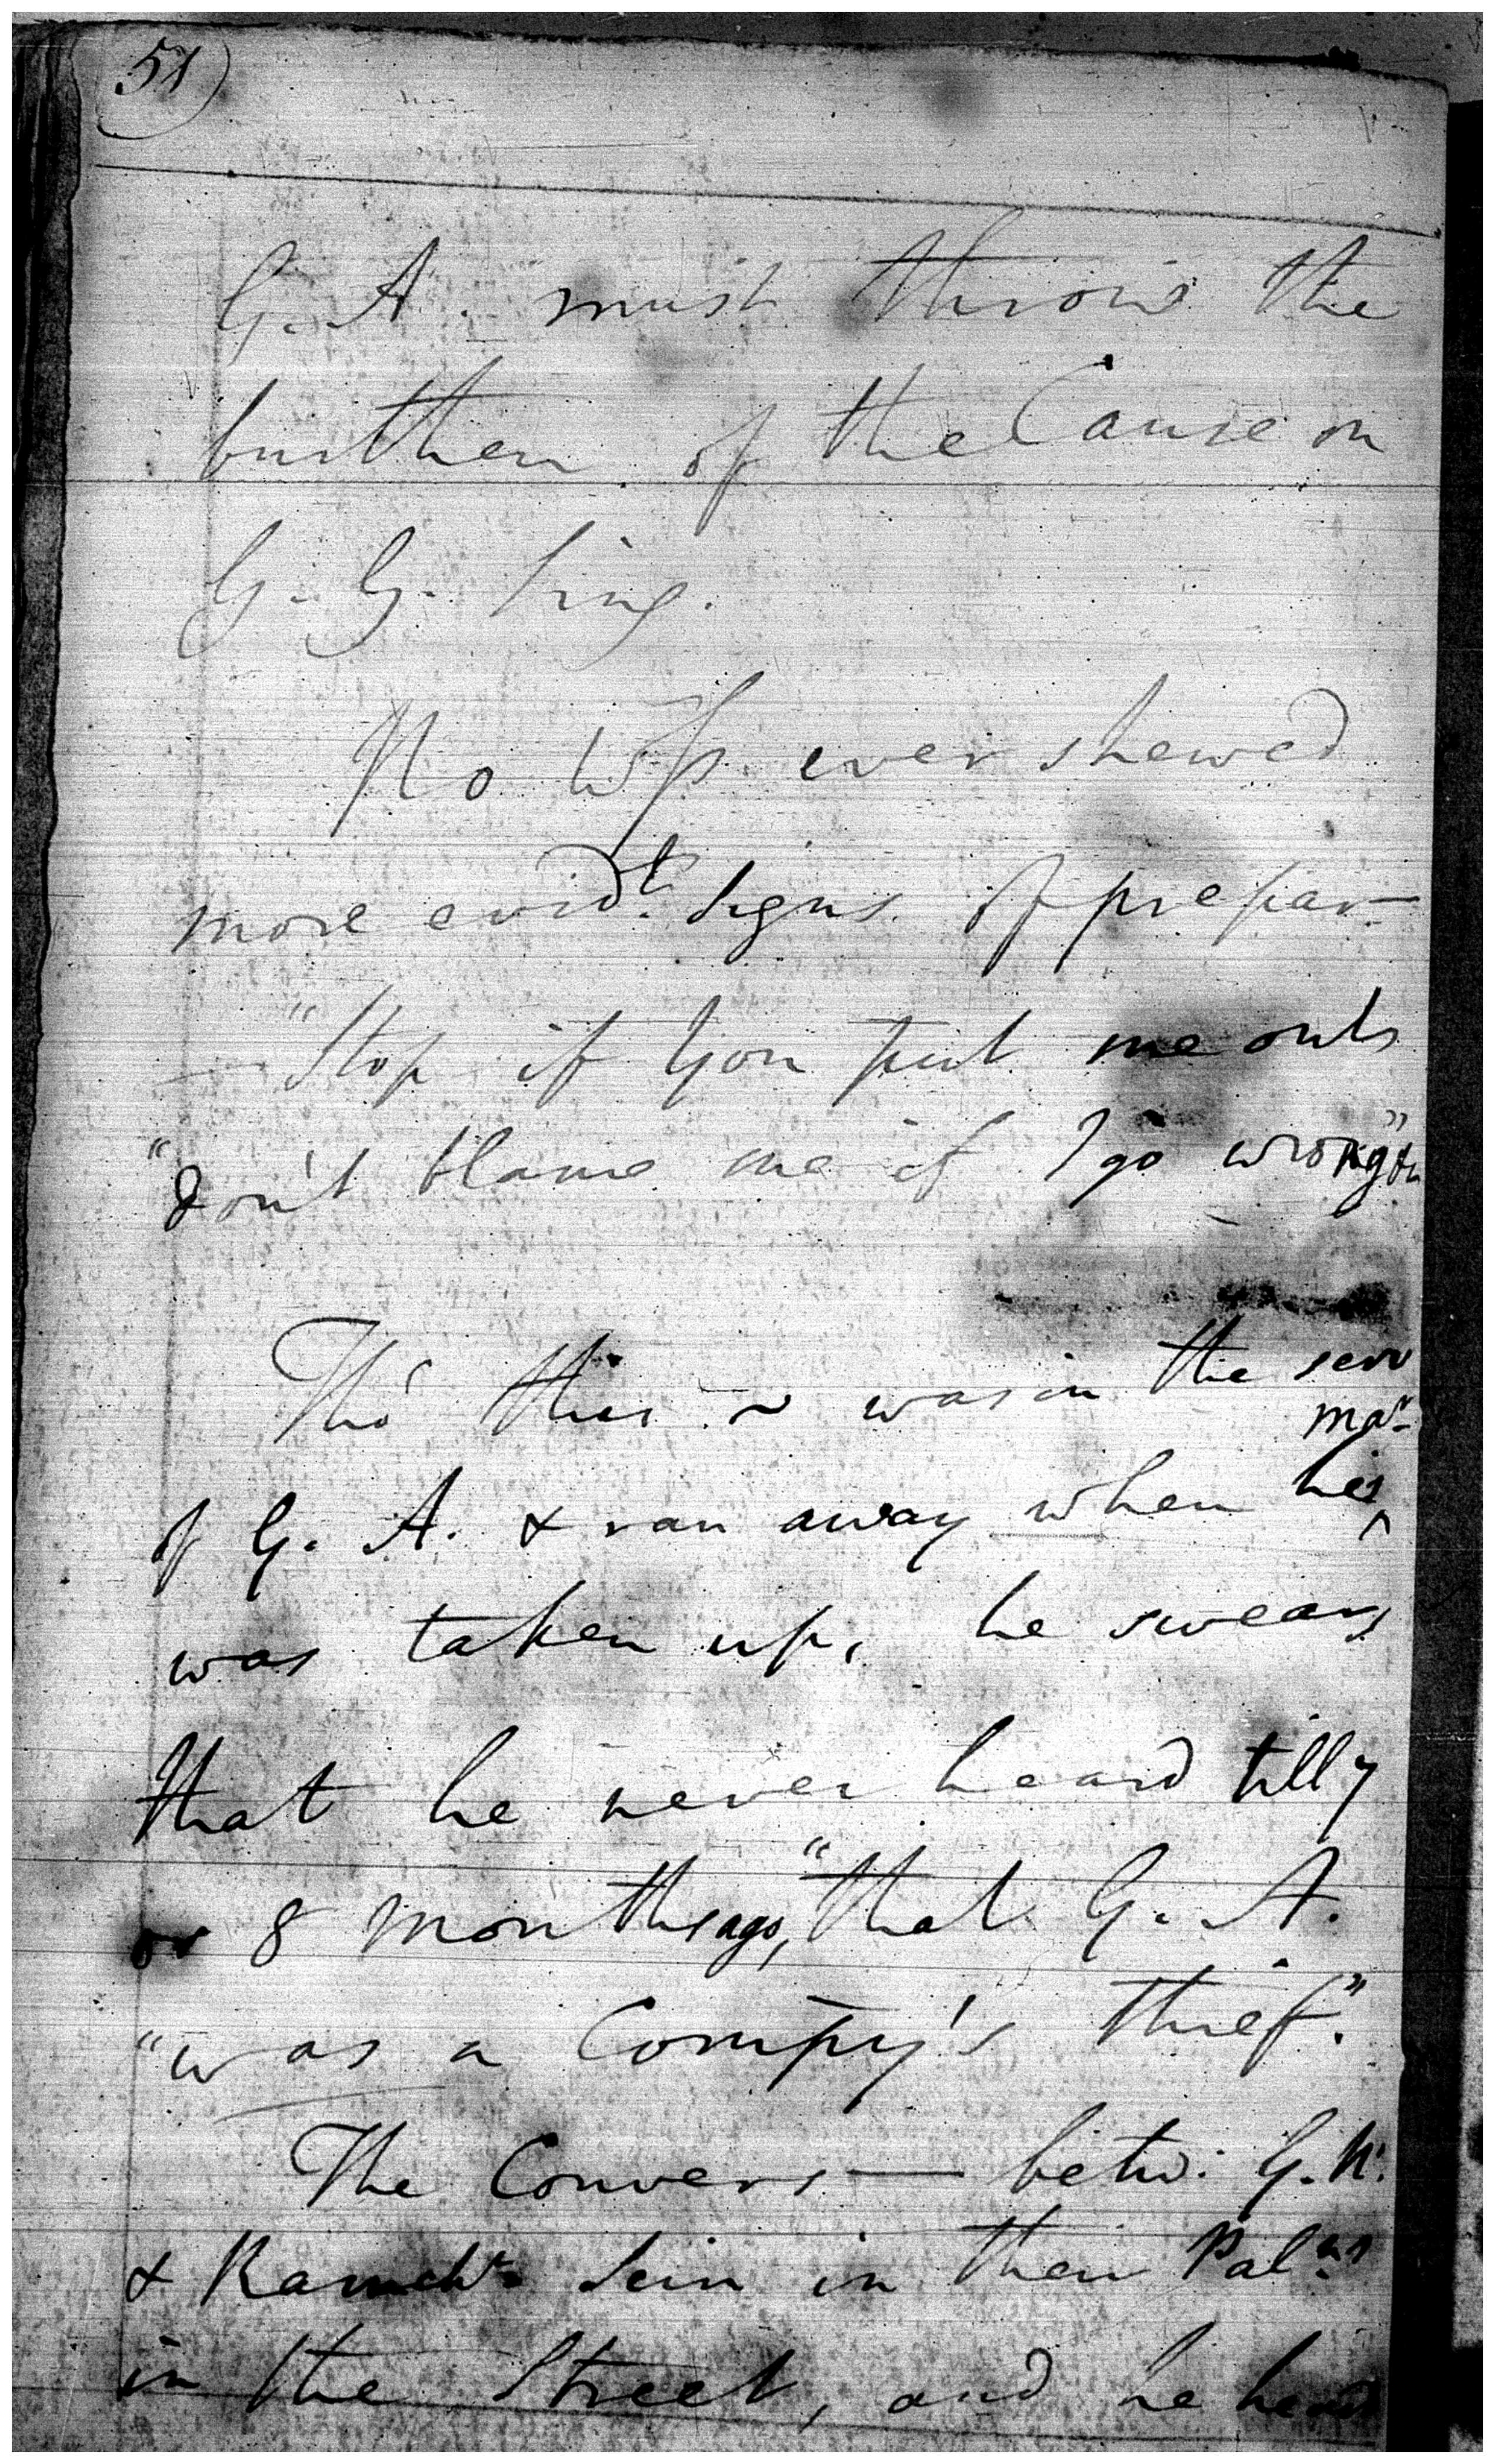 51)
G. A. must throw the
burthen of the Cause on
G. G. Sing.
No Wss. ever shewed
more evidt. signs of prepar—
— "Stop if you put me out
"don't blame me if I go wrong"
Tho' this ~ was in the serv
mar.
of G. A. & ran away when his ^
was taken up, he swears
that he never heard till 7
or 8 Months ago, "that G. A.
"was a Compy's thief."
The Convers— betw. G. K.
& Ramchr. Sein in their Palns.
in the Street, and he heard